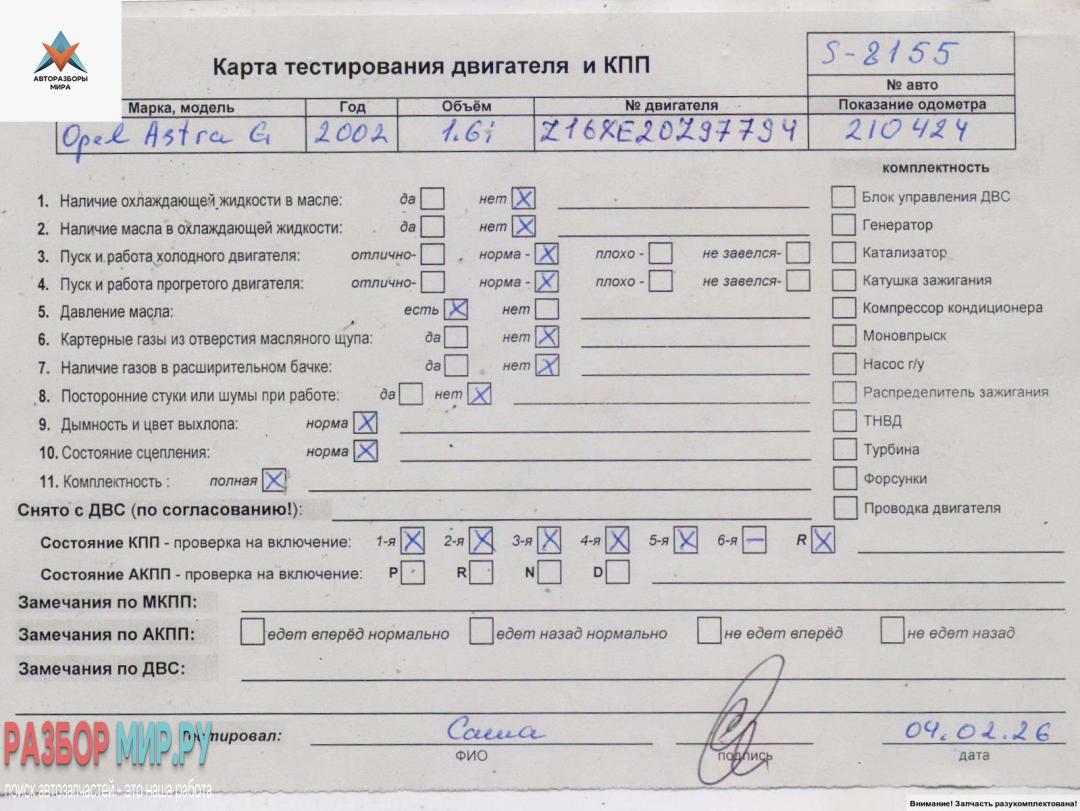 АВТОРАЗБОРЫ
МИРА
Карта тестирования двигателя и КПП
S-8155
№ авто
Марка, модель Год Объём № двигателя Показание одометра
Opel Astra G 2002 1.6i Z16XE20Z97794 210424
комплектность
1. Наличие охлаждающей жидкости в масле: да нет X
Блок управления ДВС
2. Наличие масла в охлаждающей жидкости: да нет X
Генератор
3. Пуск и работа холодного двигателя: отлично- норма - X плохо - не завелся-
Катализатор
4. Пуск и работа прогретого двигателя: отлично- норма - X плохо - не завелся-
Катушка зажигания
5. Давление масла: есть X нет
Компрессор кондиционера
6. Картерные газы из отверстия масляного щупа: да нет X
Моновпрыск
7. Наличие газов в расширительном бачке: да нет X
Насос г/у
8. Посторонние стуки или шумы при работе: да нет X
Распределитель зажигания
9. Дымность и цвет выхлопа: норма X
ТНВД
10. Состояние сцепления: норма X
Турбина
11. Комплектность : полная X
Форсунки
Снято с ДВС (по согласованию!):
Проводка двигателя
Состояние КПП - проверка на включение: 1-я X 2-я X 3-я X 4-я X 5-я X 6-я – R X
Состояние АКПП - проверка на включение: P R N D
Замечания по МКПП:
Замечания по АКПП: едет вперёд нормально едет назад нормально не едет вперёд не едет назад
Замечания по ДВС:
Тестировал: Саша 04.02.26
ФИО подпись дата
РАЗБОРМИР.РУ
поиск автозапчастей - это наша работа
Внимание! Запчасть разукомплектована!